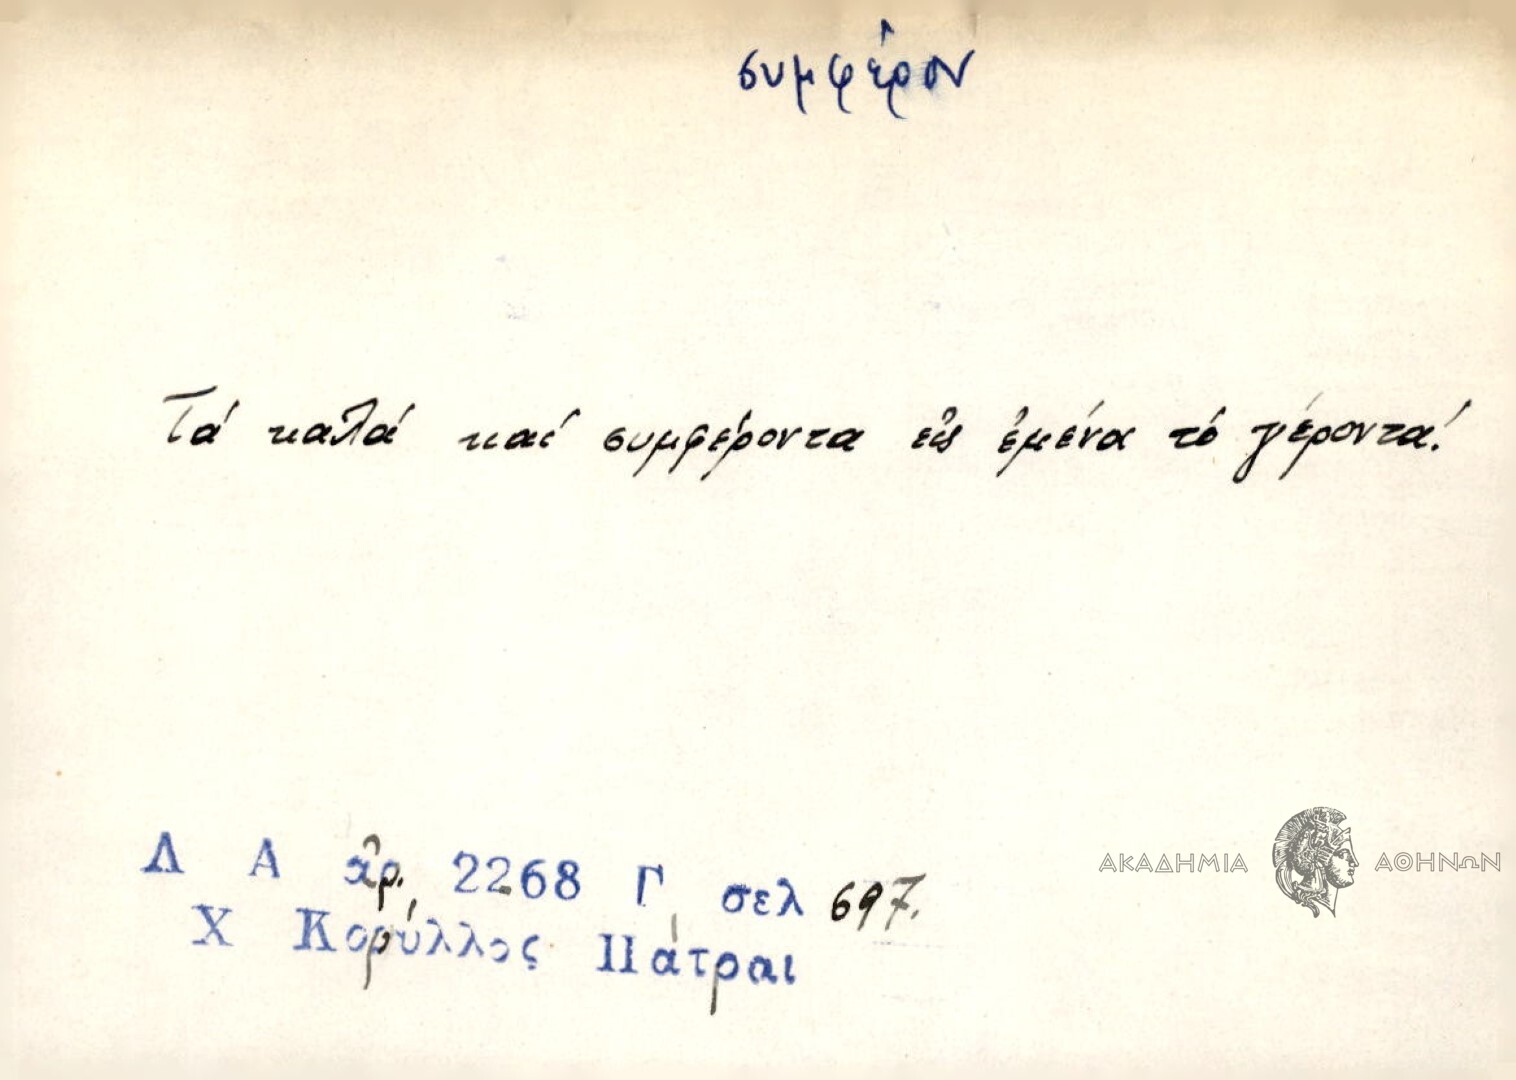 συμφέρον
Τά καλά καί συμφέροντα εἰς ἐμένα τό γέροντα!
Λ Α ἀρ. 2268 Γ σελ 697.
Χ Κορύλλος Πάτραι
ΑΚΑΔΗΜΙΑ ΑΘΗΝΩΝ